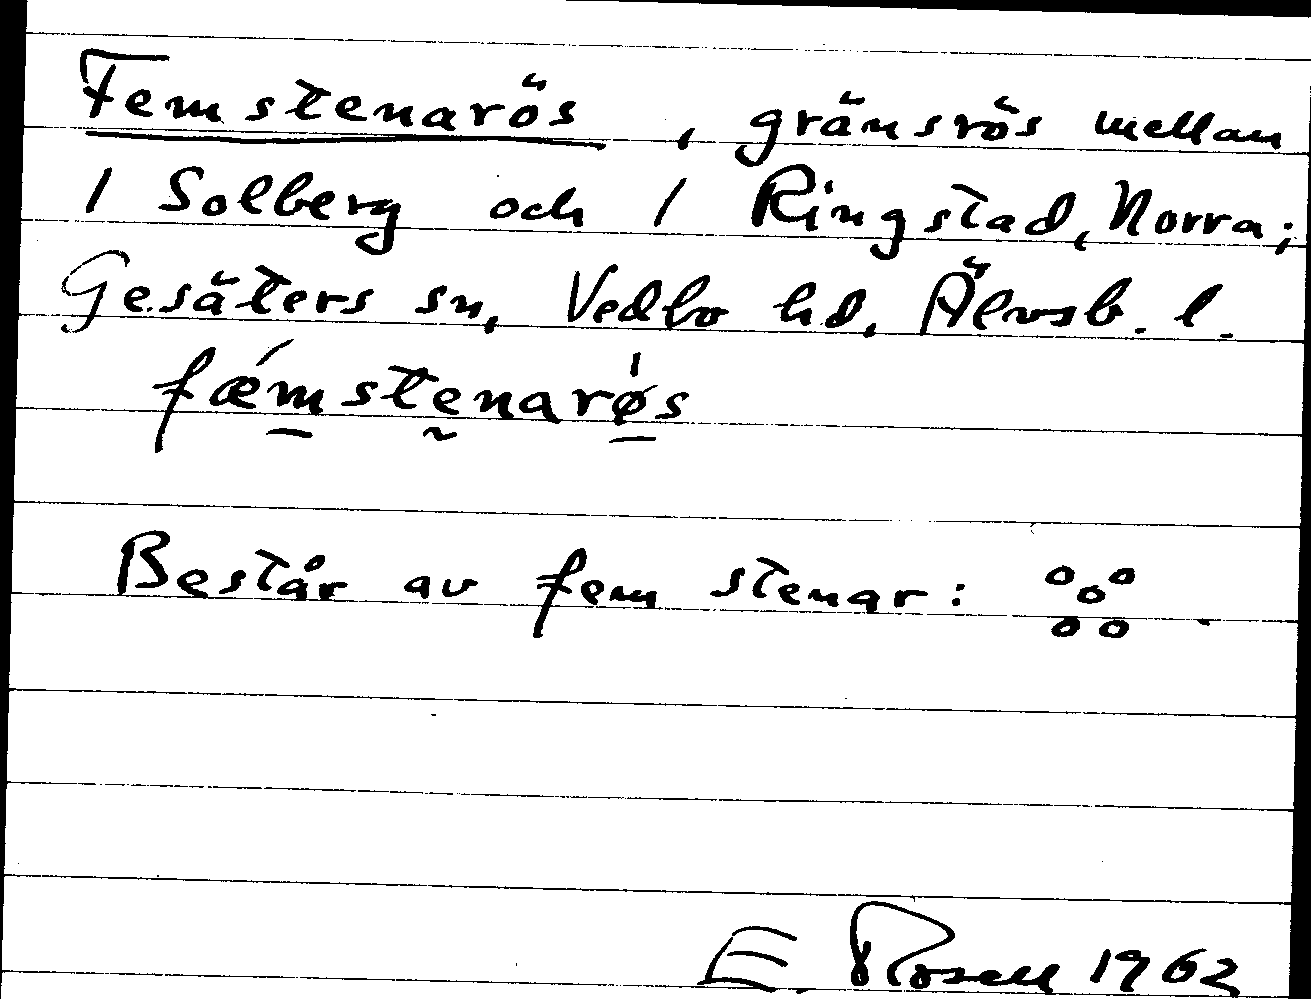 Femstenarös, gränsrös mellan
1 Solberg och 1 Ringstad, Norra;
Gesäters sn, Vedbo hd, Älvsb. l.
fǽmstenarøs
Består av fem stenar:
E. Rosell 1962